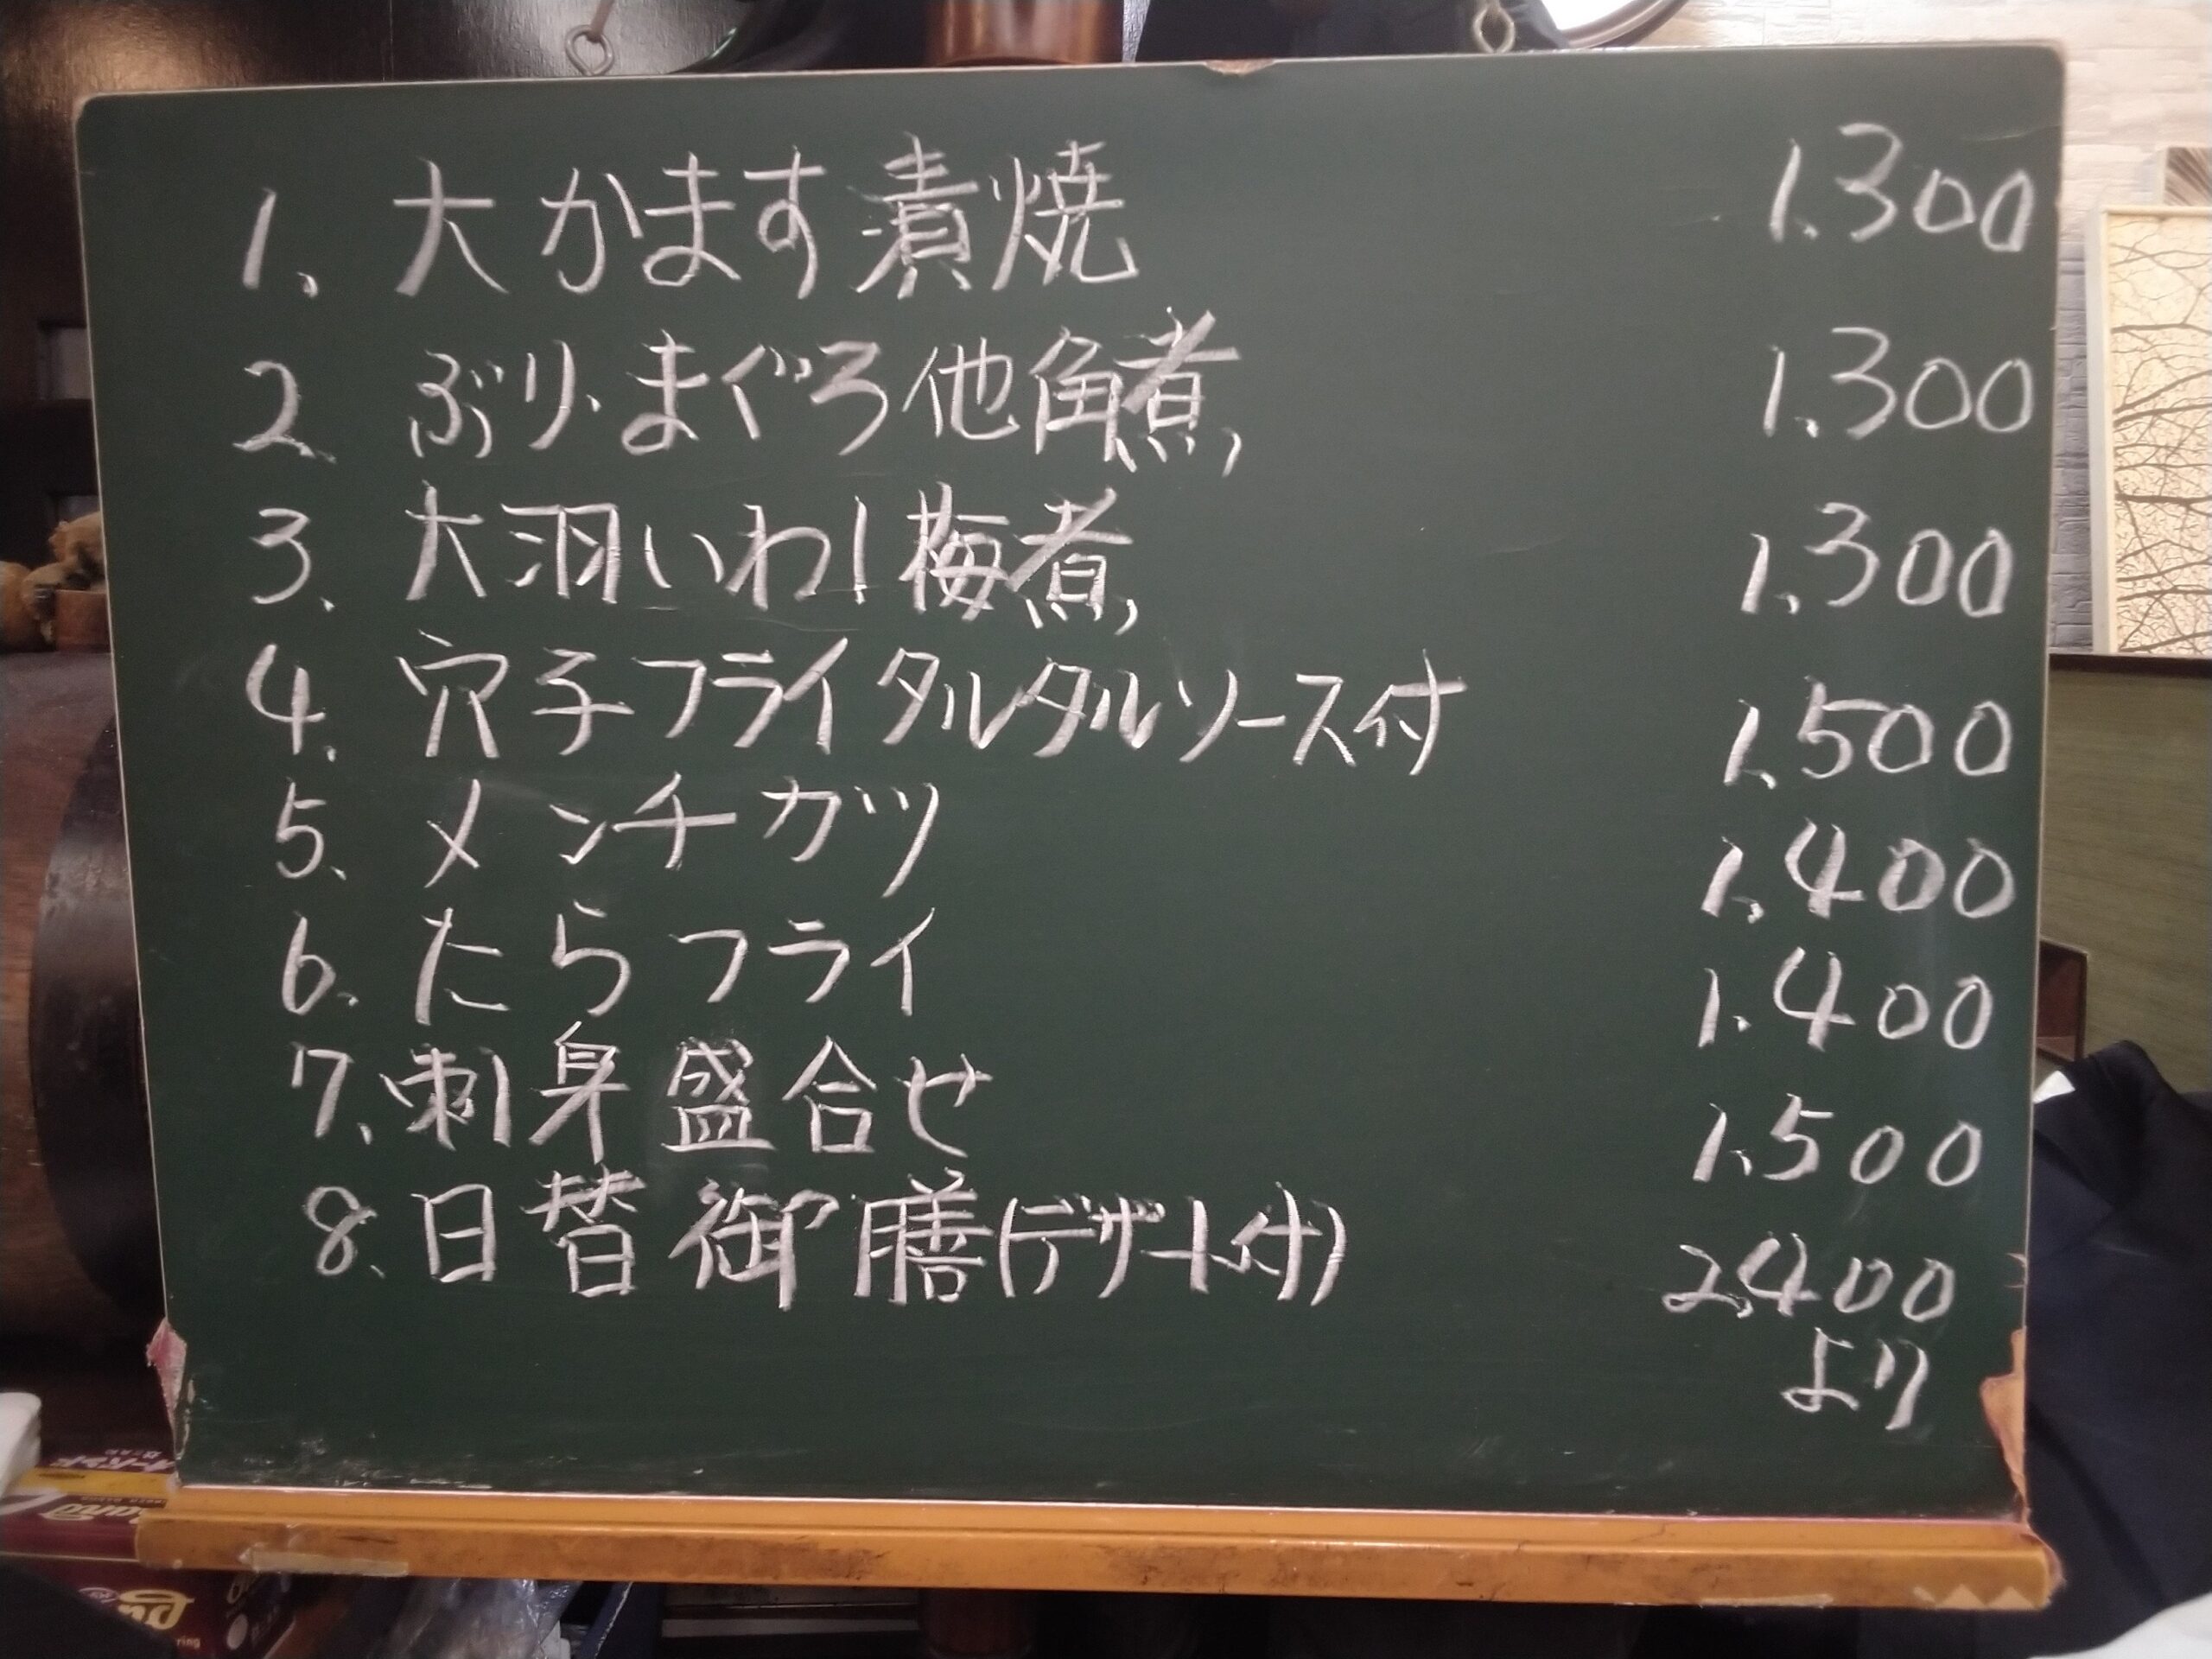 1、大かます漬焼 1.300
2、ぶり、まぐろ他角煮 1.300
3、大羽いわし梅煮 1.300
4、穴子フライタルタルソース付 1.500
5、メンチカツ 1.400
6、たらフライ 1.400
7、刺身盛合せ 1.500
8、日替御膳(デザート付) 2.400
より